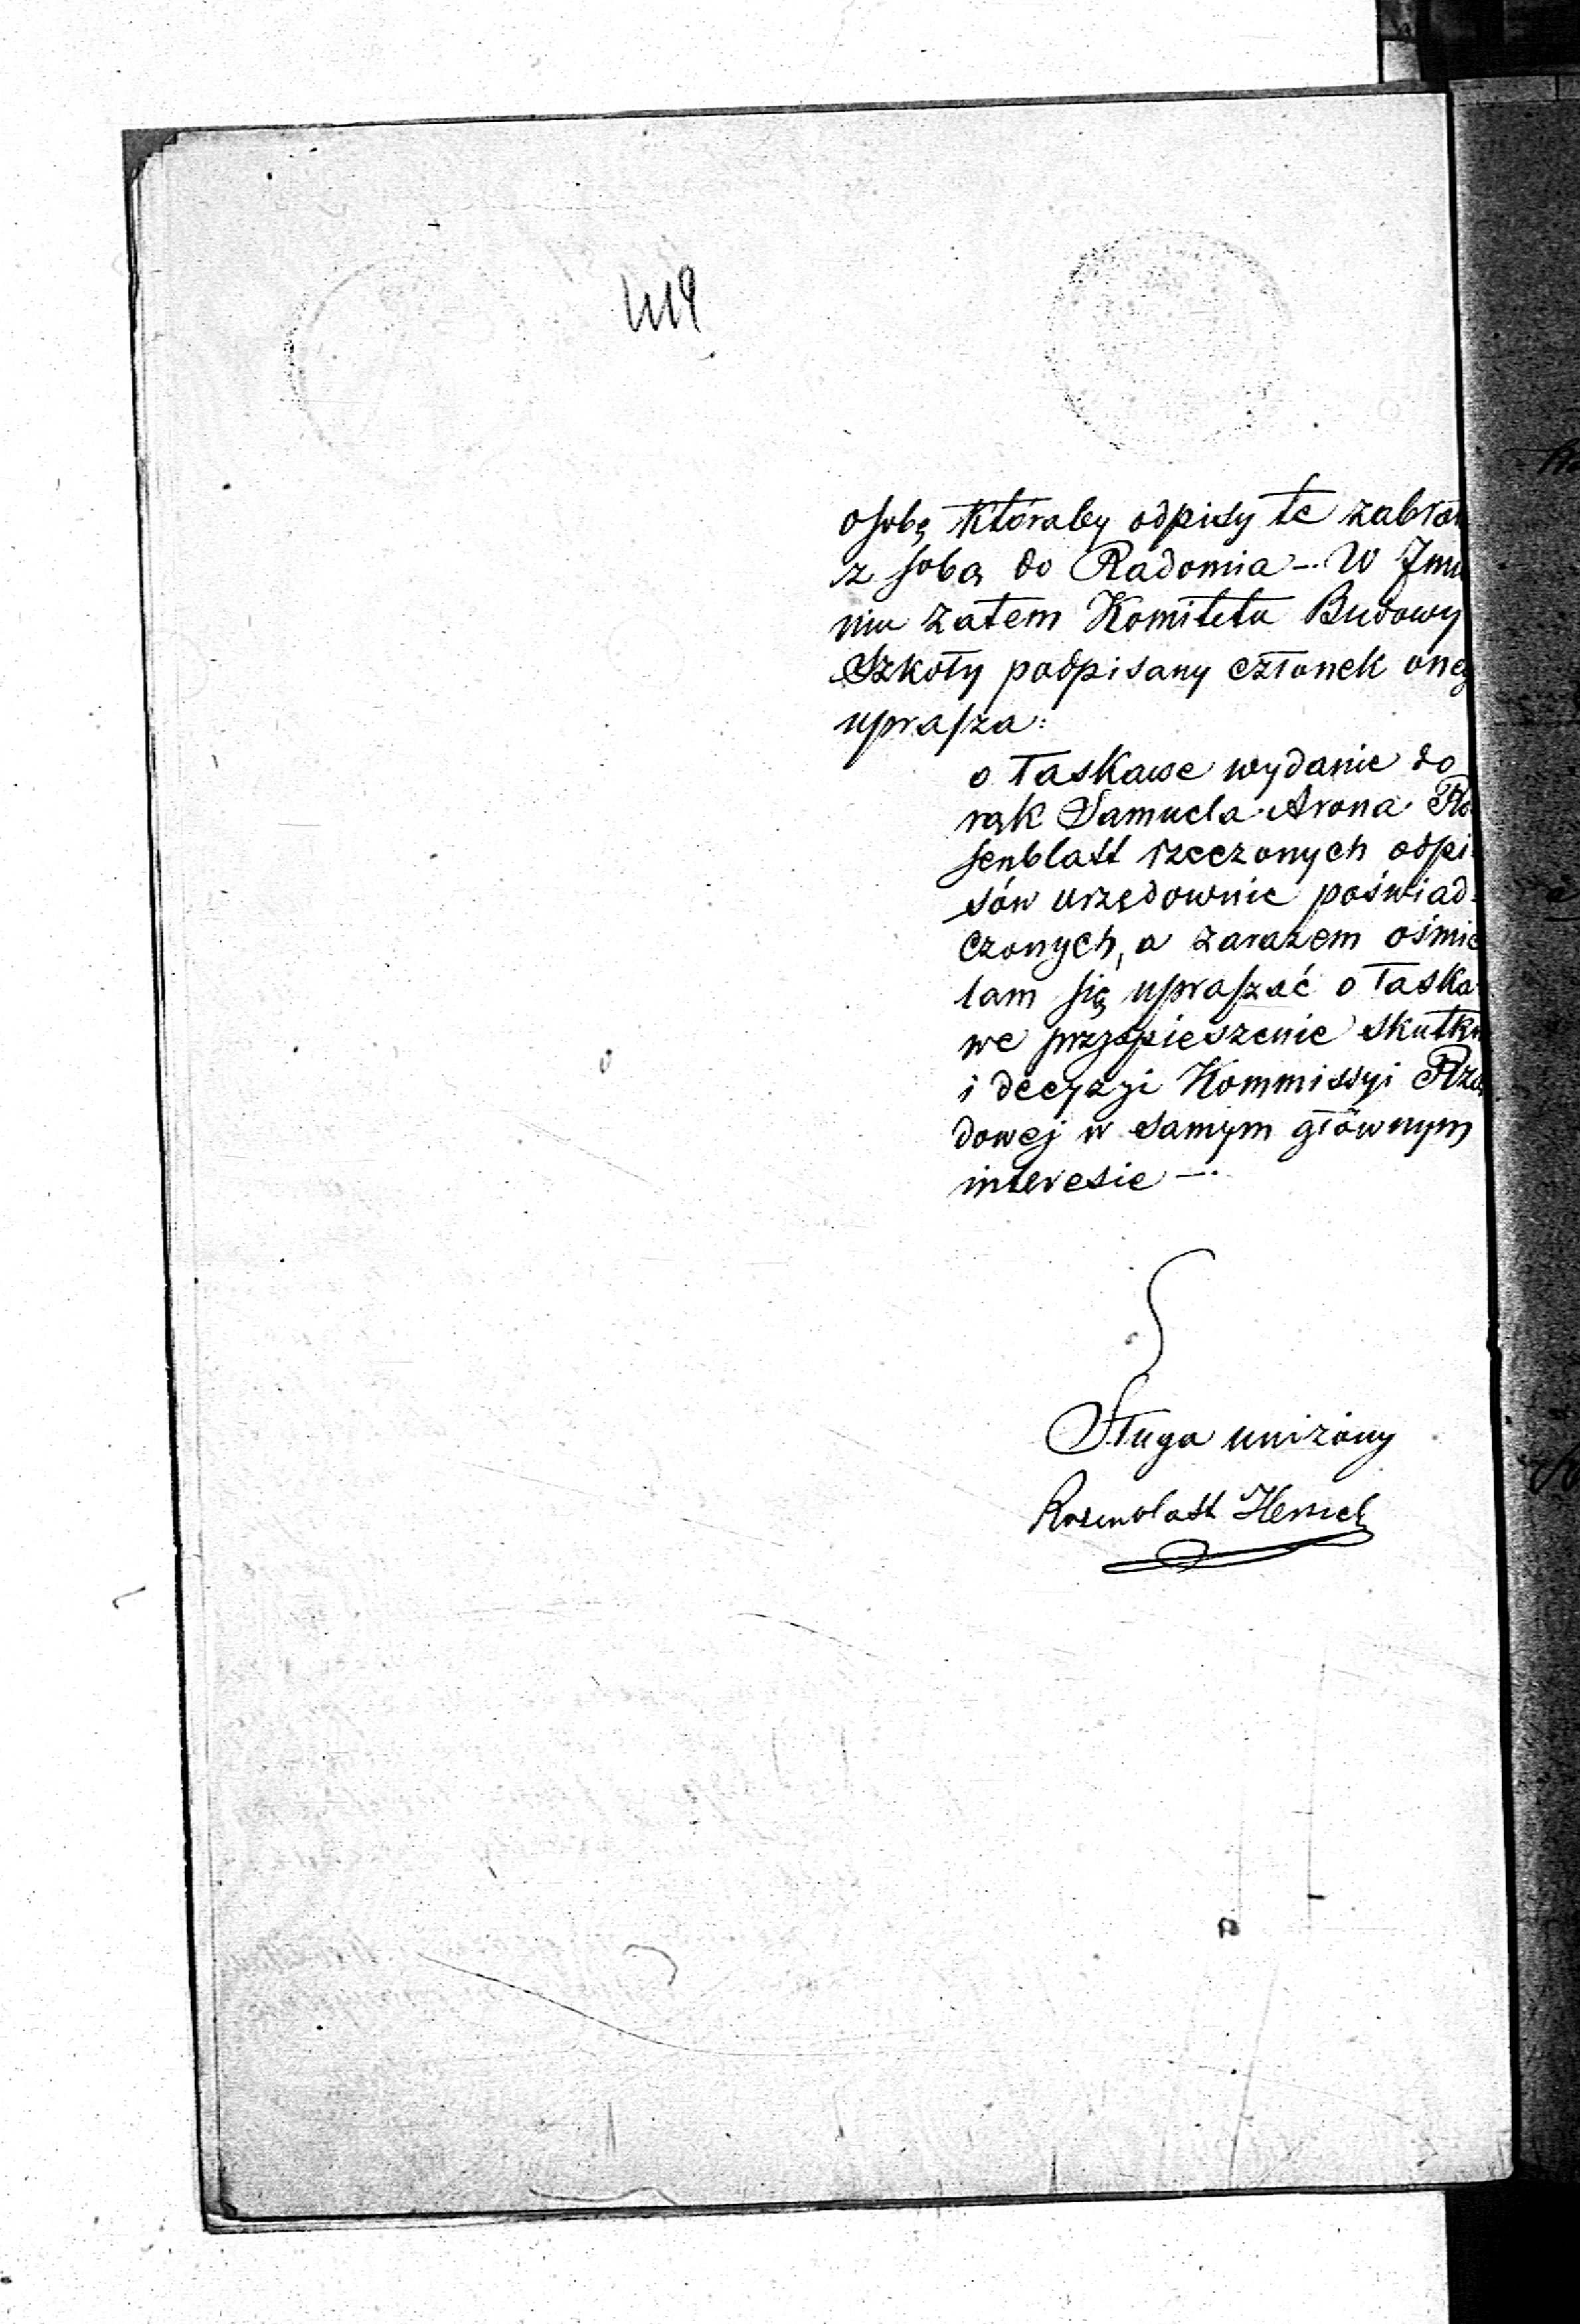 419
osobę któraby odpisy te zabrał
z sobą do Radomia –. W Imie
niu zatem Komitetu Budowy
Szkoły podpisany członek oneg
uprasza:
o łaskawe wydanie do
rąk Samuela Arona Ro
senblatt rzeczonych odpi:
sów urzędownie poświad:
czonych, a zarazem ośmie
lam się upraszać o łaska
we przyspieszenie skutku
i decyzyi Kommissyi Rzą
dowej w samym głównym
interesie –.
Sługa uniżony
Rosenblatt Hersch